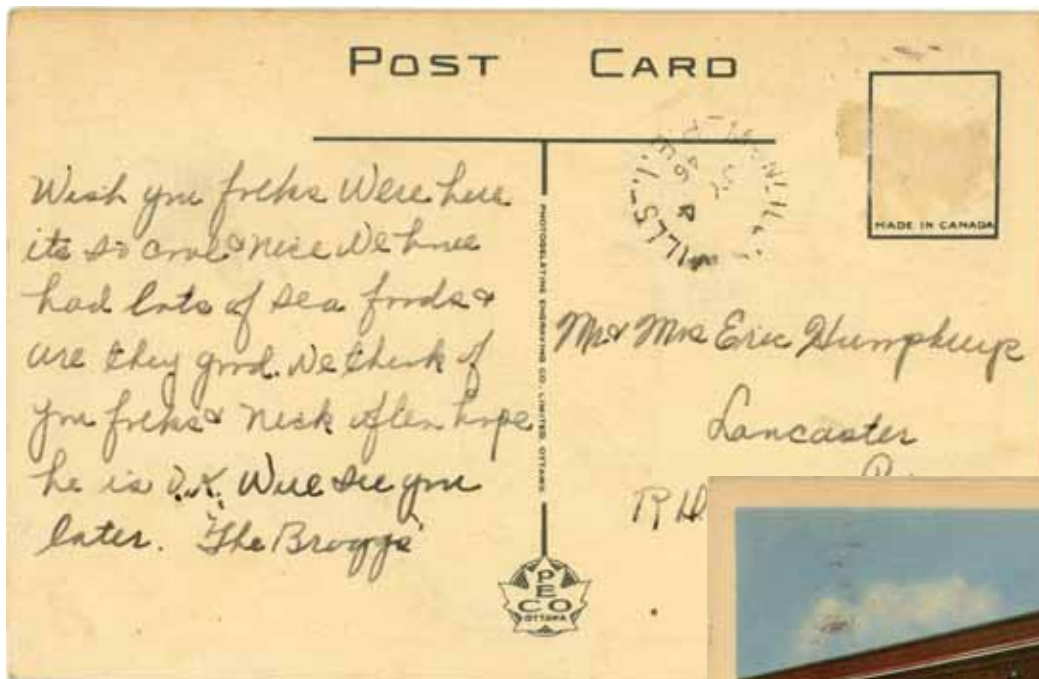 POST CARD
MADE IN CANADA
MILLS
P.E.I.
46
Wish you folks were here
its so cool & nice We have
had lots of sea foods &
are they good. We think of
you folks & Nick often hope
he is O.K. Will see you
later. The Broggs'
PHOTOGELATINE ENGRAVING CO. LIMITED OTTAWA
Mr & Mrs Eric Humphreys
Lancaster
PECO
OTTAWA